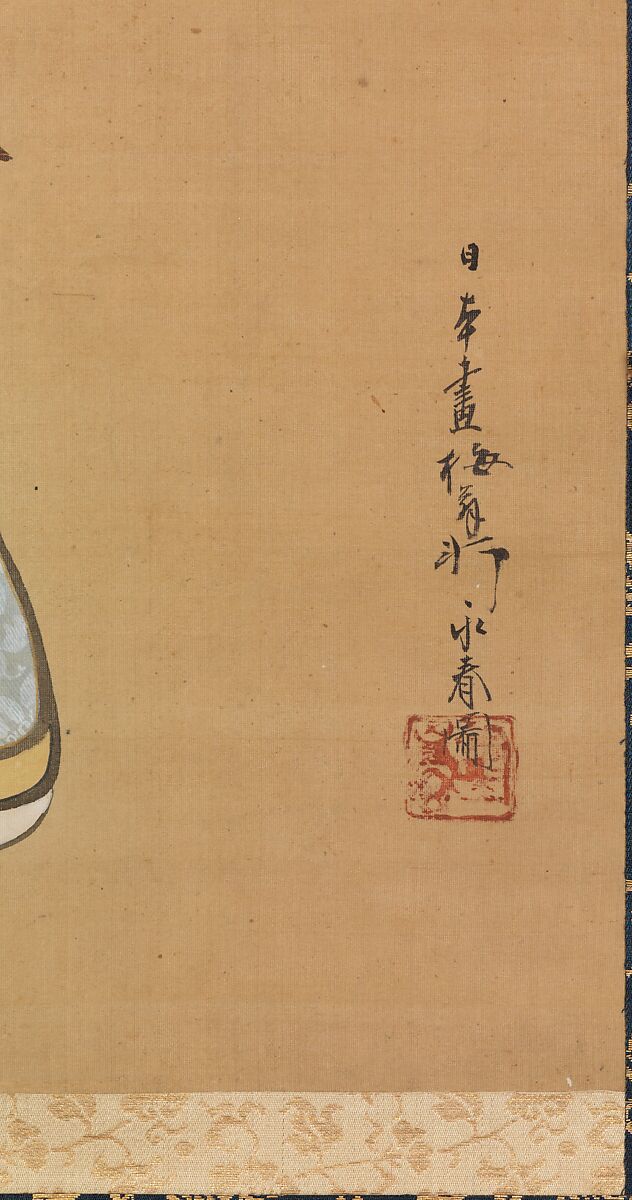 日本畫梅翁軒永春圖